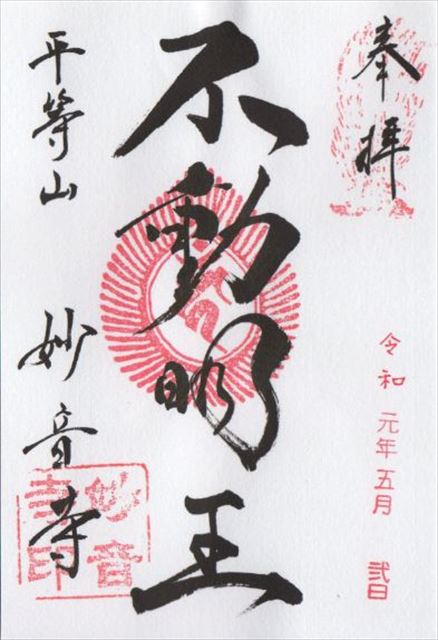 奉拝
令和元年五月弐日
不動明王
平等山
妙音寺
妙音
寺印